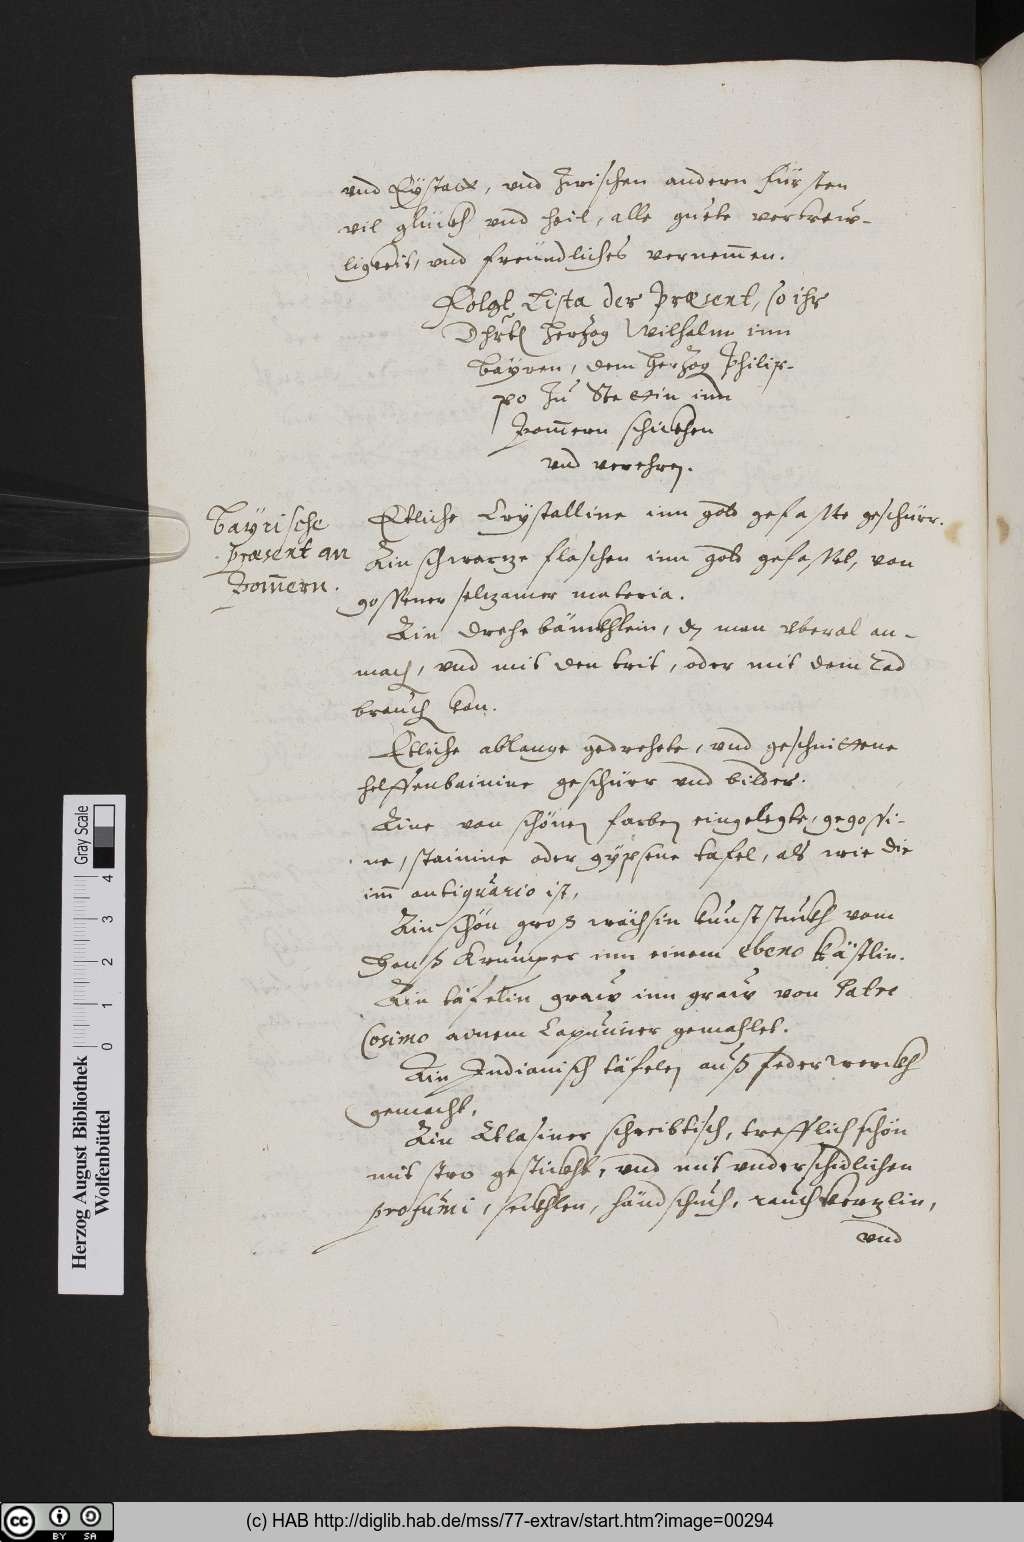 vnd Eÿstatt, vnd zwischen andern fürsten
vil glückh vnd heil, alle guete vertrew-
ligkeit, vnd freündliches vernem̅en.
Folgt Lista der Præsent, so ihr
Dhrtl Herzog Wilhalm inn
Baÿren, dem Herzog Philip-
po zu Stettin inn
Pom̅ern schickhen
vnd verehren.
Baÿrische
præsent an
Pom̅ern.
Etliche Crystalline inn gold gefasste geschürr.
Ain schwartze flaschen inn gold gefasst, von
gossener seltzamer materia.
Ain drehe bänckhlein, dz man vberal an-
mach, vnd mit den trit, oder mit dem rad
brauch kan.
Etliche ablange gedrehete, vnd geschnittene
helffenbainine geschürr vnd bilder.
Aine von schönen farben eingelegte, gegossi-
ne, stainine oder gÿpsene tafel, als wie die
im̅ antiquario ist,
Ain schön groß wächsin kunststuckh vom
Hanß Krumper inn einem ebeno kästlin.
Ain täfelin graw inn graw von Patre
Cosimo ainem Capuciner gemahlet.
Ain Indianisch täfelen auß federwerckh
gemacht,
Ain Atlasiner schreibtisch, trefflich schön
mit stro gestickht, vnd mit vnderschidlichen
profumi, seckhlen, händschuch, rauchkertzlin,
vnd
Gray Scale
0 1 2 3 4
Herzog August Bibliothek
Wolfenbüttel
cc BY SA
(c) HAB http://diglib.hab.de/mss/77-extrav/start.htm?image=00294